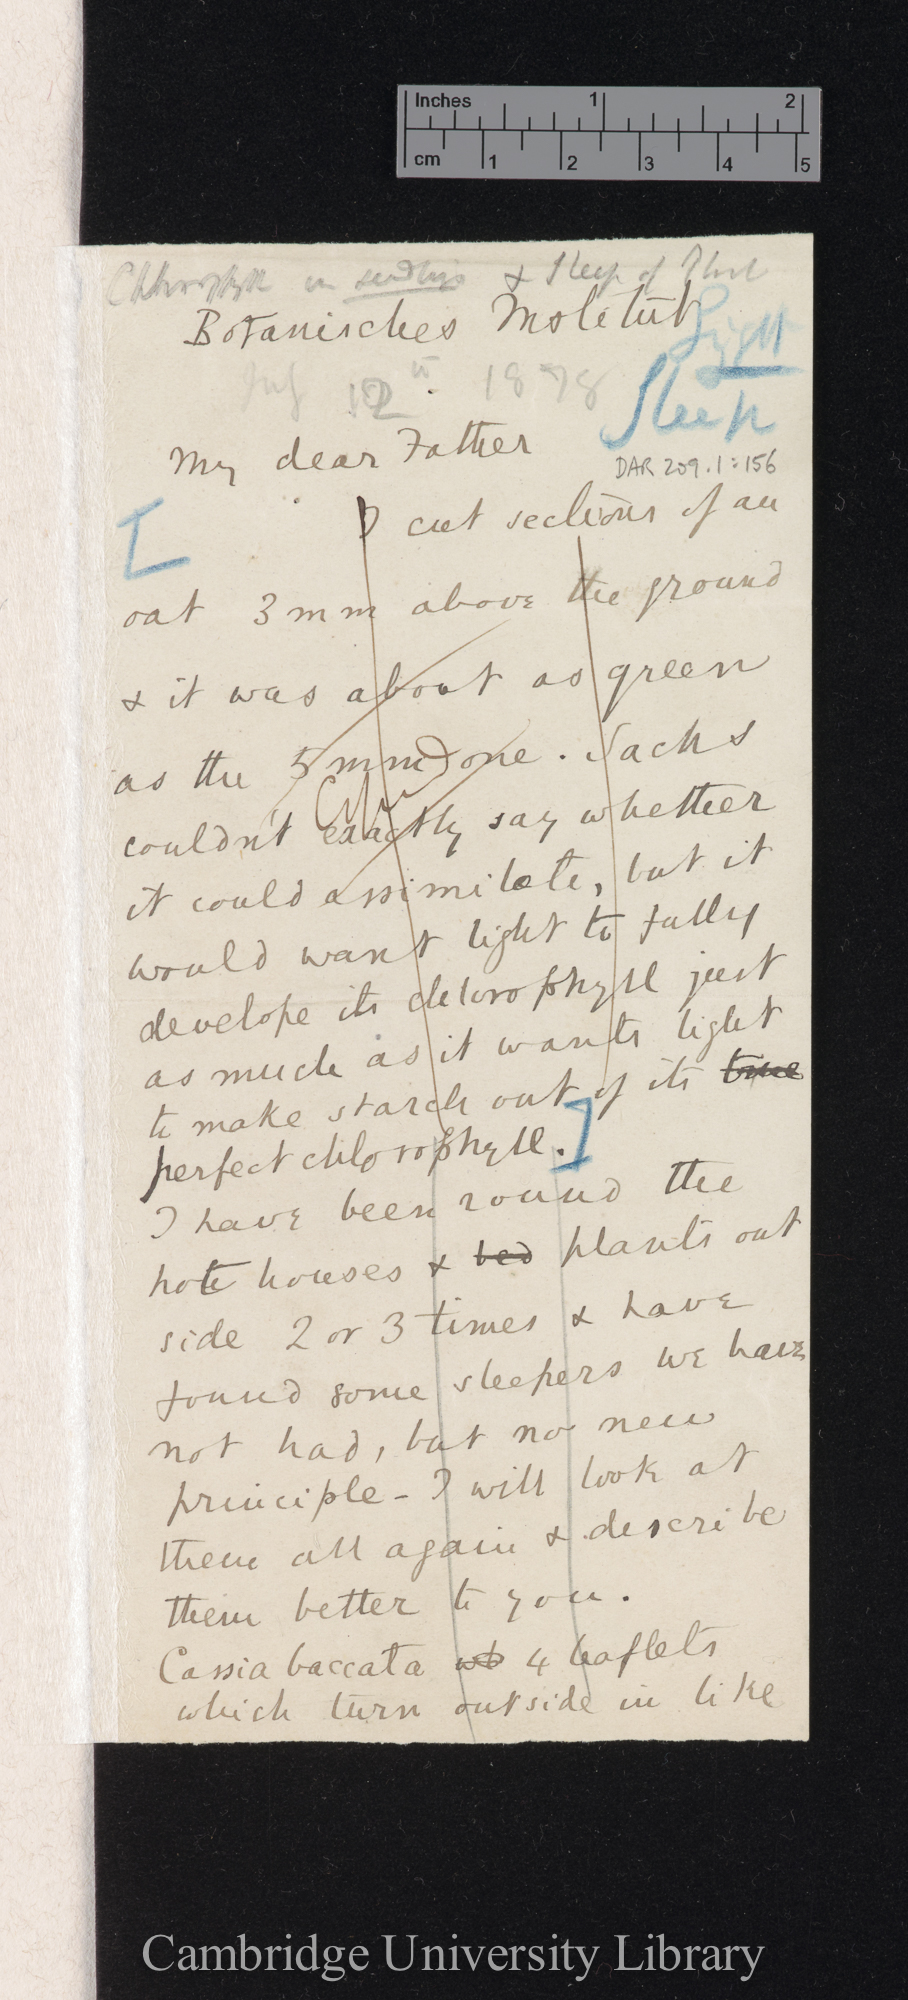 Inches 1 2
cm 1 2 3 4 5
Chlorophyll in seedlings & Sleep of Plant
Botanisches Institut
Light
July 12th. 1878
Sleep
My dear Father
DAR 209.1:156
[ I cut sections of an
oat 3mm above the ground
& it was about as green
as the 5mm one. Sachs
couldn't exactly say whether
it could assimilate, but it
would want light to fully
develope its chlorophyll just
as much as it wants light
to make starch out of its true
perfect chlorophyll.]
I have been round the
hot houses & bed plants out
side 2 or 3 times & have
found some sleepers we have
not had, but no new
principle - I will look at
them all again & describe
them better to you.
Cassia baccata wb 4 leaflets
which turn outside in like
Cambridge University Library